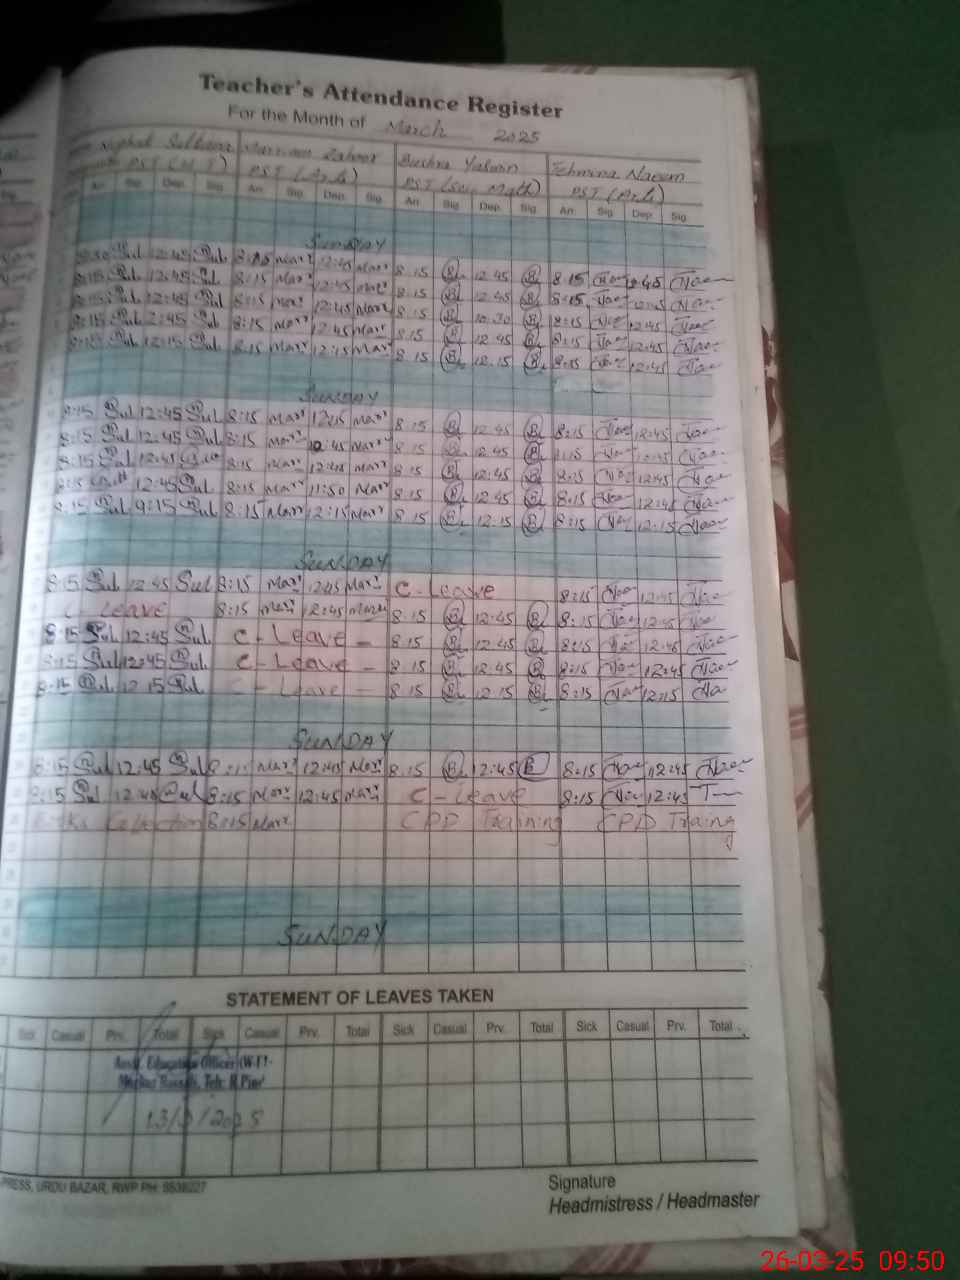 Teacher's Attendance Register
For the Month of March 2025
Sultana Marriam Zahoor Bushra Yasmin Tehmina Naeem
PST (Arts) PST (Sci, Math) PST (Arts)
Arr. Sig. Dep. Sig. Arr. Sig. Dep. Sig. Arr. Sig. Dep. Sig. Arr. Sig. Dep. Sig.
SUNDAY
Sul 12:45 Sul 8:15 Mar 12:45 Mar 8.15 B 12.45 B 8:15 Nae 12:45 Nae
8:15 Sul 12:45 Sul 8:15 Mar 12:45 Mar 8.15 B 12.45 B 8:15 Nae 12:45 Nae
8:15 Sul 12:45 Sul 8:15 Mar 12:45 Mar 8.15 B 10.30 B 8:15 Nae 12:45 Nae
8:15 Sul 2:45 Sul 8:15 Mar 12:45 Mar 8.15 B 12.45 B 8:15 Nae 12:45 Nae
Sul 12:15 Sul 8:15 Mar 12:15 Mar 8.15 B 12.15 B 8:15 Nae 12:45 Nae
SUNDAY
8:15 Sul 12:45 Sul 8:15 Mar 12:45 Mar 8.15 B 12.45 B 8:15 Nae 12:45 Nae
8:15 Sul 12:45 Sul 8:15 Mar 12:45 Mar 8.15 B 12.45 B Nae 12:45 Nae
8:15 Sul 12:45 Sul 8:15 Mar 12:45 Mar 8.15 B 12.45 B 8:15 Nae 12:45 Nae
8:15 Sul 12:45 Sul 8:15 Mar 11:50 Mar 8.15 B 12.45 B 8:15 Nae 12:45 Nae
8:15 Sul 9:15 Sul 8:15 Mar 12:15 Mar 8.15 B 12.15 B 8:15 Nae 12:15 Nae
SUNDAY
8:15 Sul 12:45 Sul 8:15 Mar 12:45 Mar C-Leave 8:15 Nae 12:45 Nae
C-Leave 8:15 Mar 12:45 Mar 8.15 B 12:45 B 8:15 Nae 12:45 Nae
8:15 Sul 12:45 Sul C-Leave - 8.15 B 12.45 B 8:15 Nae 12:45 Nae
8:15 Sul 12:45 Sul C-Leave - 8.15 B 12.45 B 8:15 Nae 12:45 Nae
8:15 Sul 12 15 Sul C-Leave - 8.15 B 12.15 B 8:15 Nae 12:15 Nae
SUNDAY
8:15 Sul 12:45 Sul 8:15 Mar 12:45 Mar 8.15 B 12:45 B 8:15 Nae 12:45 Nae
8:15 Sul 12:45 Sul 8:15 Mar 12:45 Mar C-Leave 8:15 Nae 12:45
Collection 8:15 Mar CPD Training CPD Traing
SUNDAY
STATEMENT OF LEAVES TAKEN
Sick Casual Prv. Total Sick Casual Prv. Total Sick Casual Prv. Total Sick Casual Prv. Total
Asstt. Education Officer (W-
Markaz
13/3/2025
PRESS, URDU BAZAR, RWP PH: 5538227
Signature
Headmistress / Headmaster
26-03-25 09:50